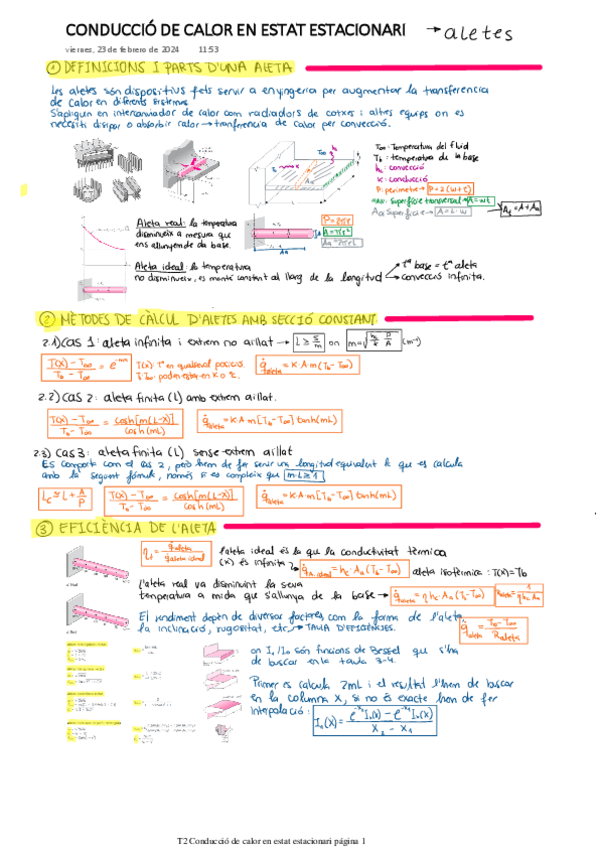 CONDUCCIÓ DE CALOR EN ESTAT ESTACIONARI → aletes
viernes, 23 de febrero de 2024 11:53
① DEFINICIONS I PARTS D'UNA ALETA
Les aletes són dispositius fets servir a enyingeria per augmentar la transferència
de calor en diferents sistemes.
S'apliquen en intercanviador de calor com radiadors de cotxes i altres equips on es
necessiti disipar o absorbir calor → tranferencia de calor per convecció.
T∞: Temperatura del fluid
Tb: temperatura de la base
h: convecció
k: conducció
P: perímetre → P=2(w+t)
superfície transversal → A=wt
Aa: superfície → A=L·w
At=A+Aa
Aleta real: la temperatura
disminueix a mesura que
ens allunyem de da base.
P=2πr
A=πr²
Aleta ideal: la temperatura
no disminueix, es manté constant al llarg de la longitud
Tª base = tª aleta
convecció infinita.
② MÈTODES DE CÀLCUL D'ALETES AMB SECCIÓ CONSTANT
2.1) CAS 1: aleta infinita i extrem no aïllat → L ≥ 5/m on m=√(h/k · P/A) (m⁻¹)
T(x) - T∞ / Tb - T∞ = e^-mx
T(x): Tª en qualsevol posició.
q̇aleta = k·A·m(Tb-T∞)
2.2) CAS 2: aleta finita (L) amb extrem aïllat.
T(x) - T∞ / Tb - T∞ = cosh[m(L-x)] / cosh(mL)
q̇aleta = k·A·m[Tb-T∞] tanh(mL)
2.3) CAS 3: aleta finita (L) sense extrem aïllat
Es comporta com el cas 2, però hem de fer servir una longitud equivalent Lc que es calcula
amb la següent fórmula, només si es compleix que m·L≥1
Lc ≅ L + A/P
T(x) - T∞ / Tb - T∞ = cosh[m(L-x)] / cosh(mL)
q̇aleta = k·A·m[Tb-T∞] tanh(mL)
③ EFICIÈNCIA DE L'ALETA
q̇aleta / q̇aleta ideal
l'aleta ideal és la que la conductivitat tèrmica
(k) és infinita
q̇a,ideal = hc·Aa(Tb-T∞)
aleta isotèrmica: T(x)=Tb
L'aleta real va disminuint la seva
temperatura a mida que s'allunya de la base →
q̇aleta = η hc·Aa(Tb-T∞)
Raleta = 1 / η hc Aa
El rendiment depèn de diversos factores com la forma de l'aleta
la inclinació, rugositat, etc. → TAULA D'EFICIÈNCIES.
q̇aleta = Tb-T∞ / Raleta
on I₁/I₀ són funcions de Bessel que s'ha
de buscar en la taula 3-4.
Primer es calcula 2mL i el resultat l'hem de buscar
en la columna x, si no és exacte hem de fer
interpolació:
T2 Conducció de calor en estat estacionari página 1